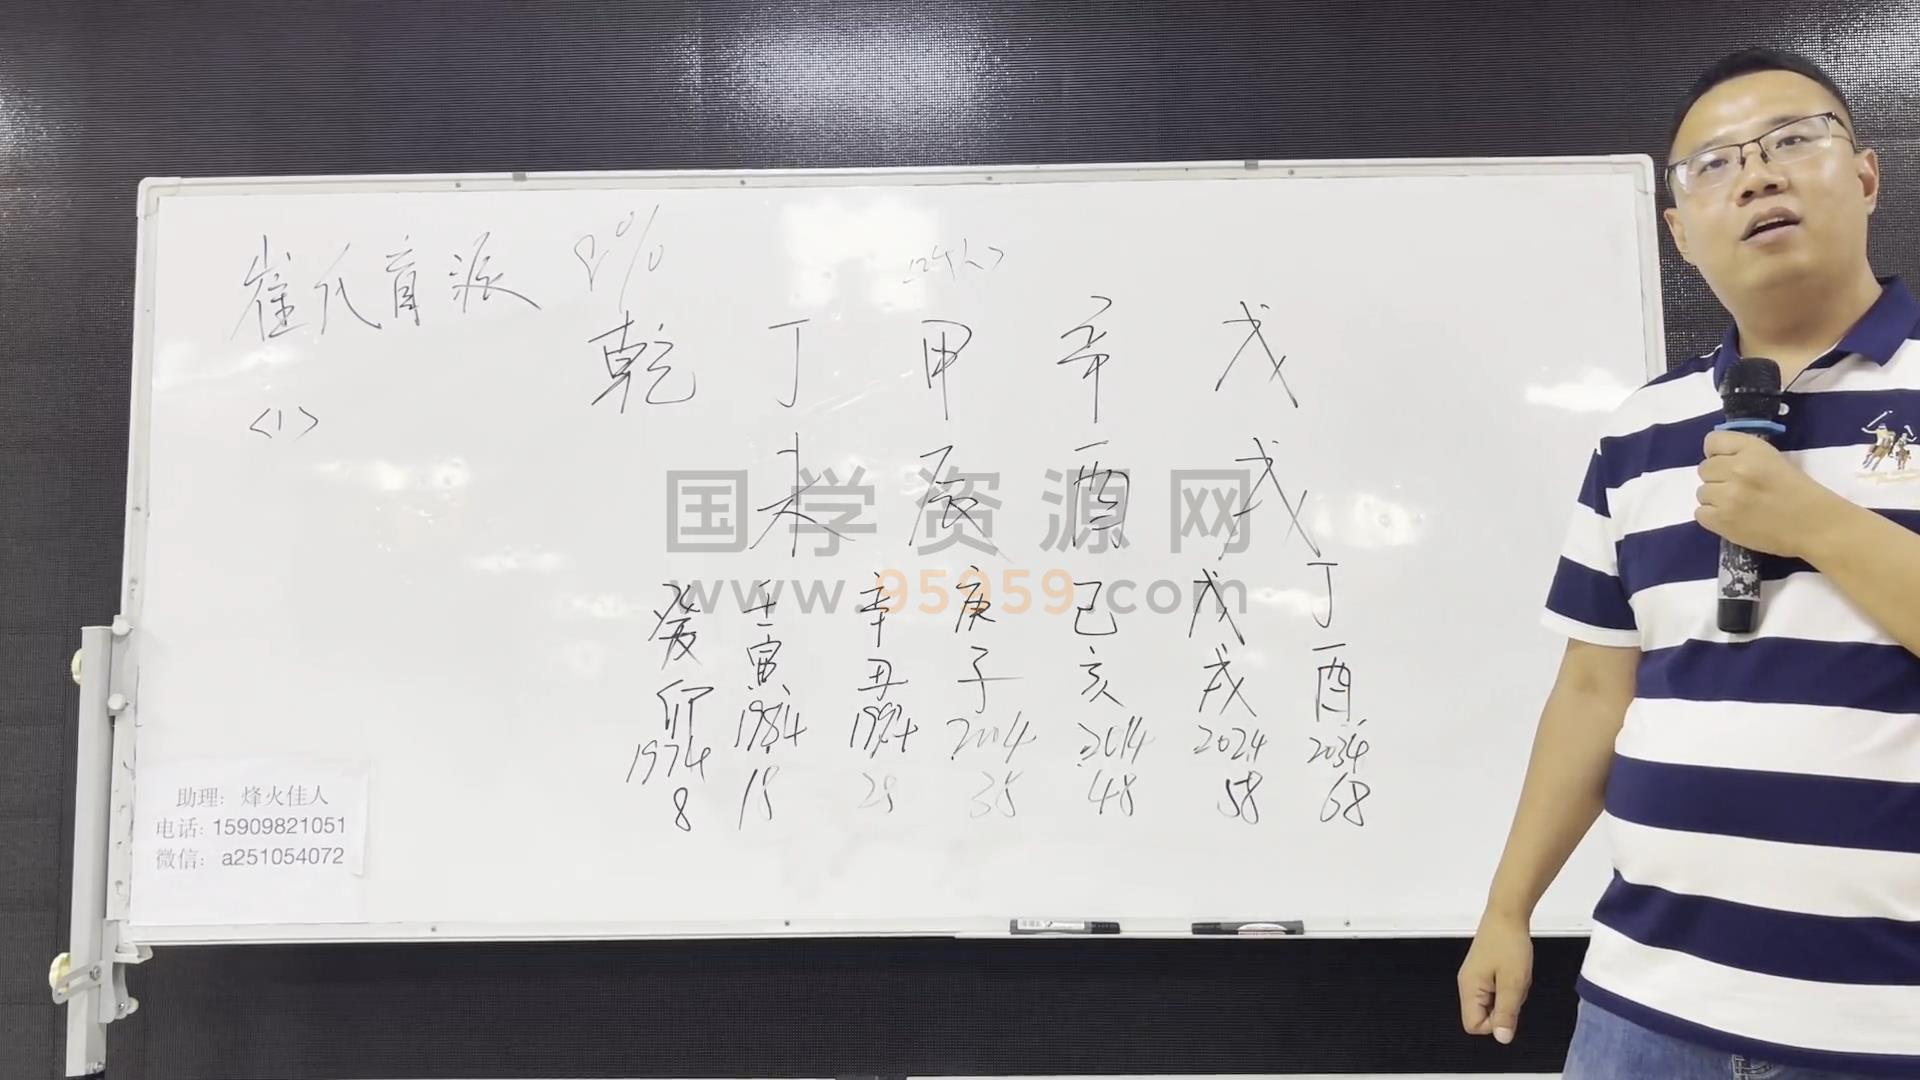 崔氏盲派
<1>
乾 丁 甲 辛 戊
未 辰 酉 戌
国学资源网
www.95959.com
癸 壬 辛 庚 己 戊 丁
卯 寅 丑 子 亥 戌 酉
1974 1984 1994 2004 2014 2024 2034
8 18 28 38 48 58 68
助理: 烽火佳人
电话: 15909821051
微信: a251054072